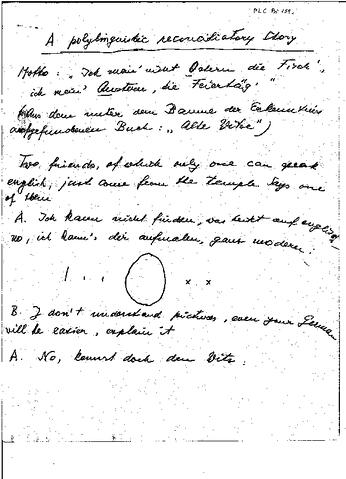 A polylinguistic reconciliatory story
Motto: „Ich mein' nicht Ostern die Fisch',
ich mein' Austern, die Feiertäg'"
(Aus dem unter dem Baume der Erkenntnis
aufgefundenen Buch: „Alte Witze")
Two friends, of which only one can speak
english, just come from the temple. Says one
of them
A. Ich kann nicht finden, was heisst auf englisch
no, ich kann's dir aufmalen, ganz modern:
| . . x x
B. I don't understand pictures, even your German
will be easier, explain it
A. No, kennst doch den Witz: